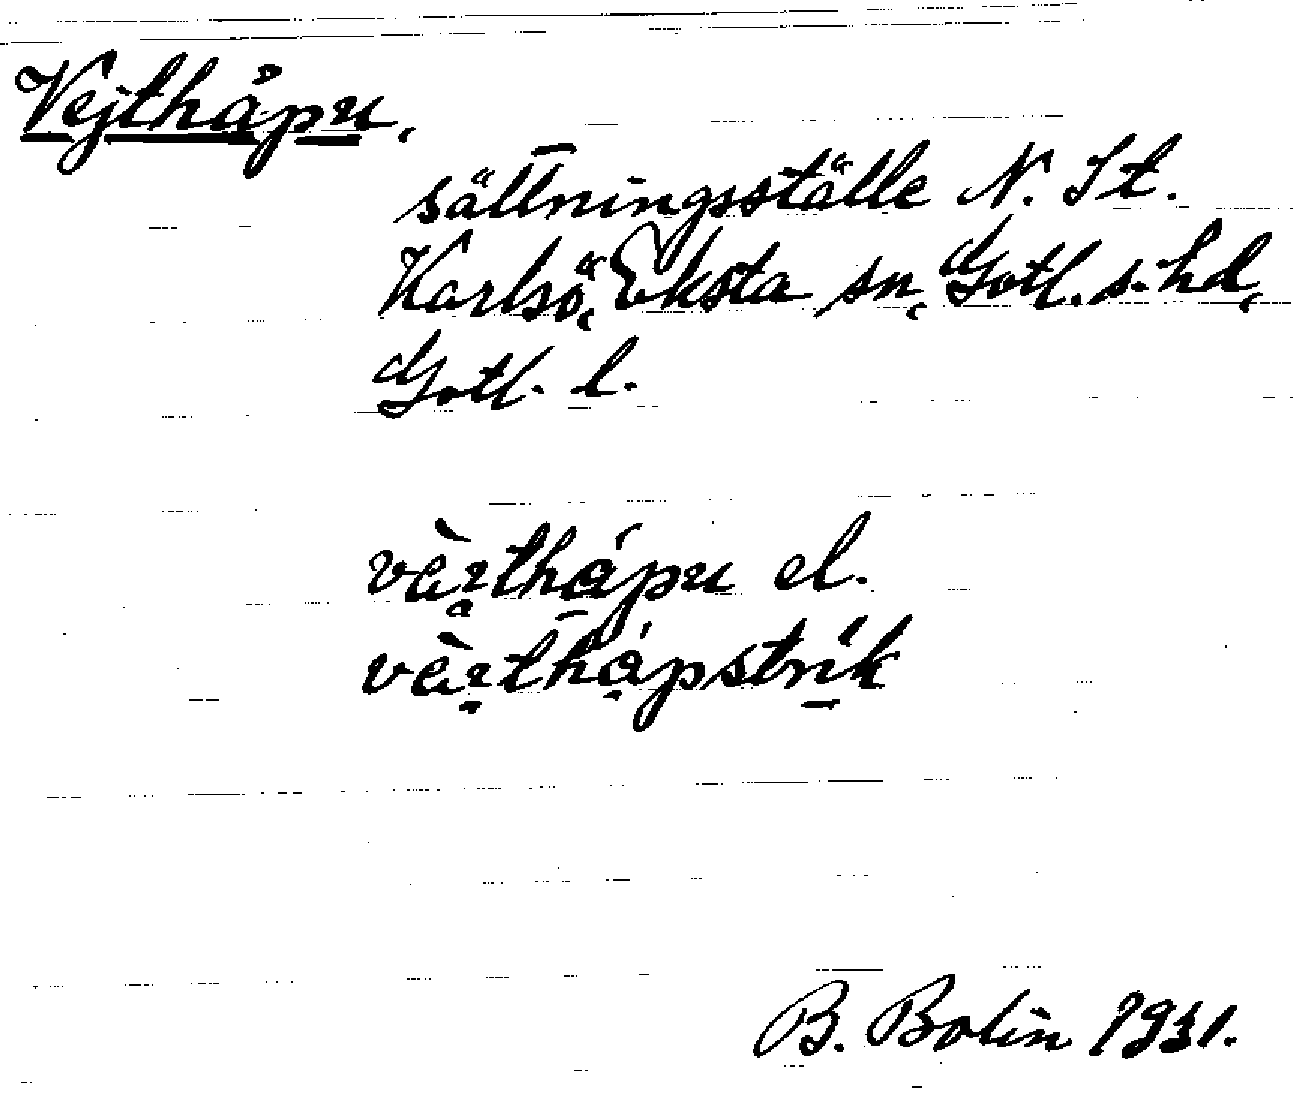 Vejthåpu,
sättningsställe N. St.
Karlsö, Eksta sn, Gotl. s. hd,
Gotl. l.
vàɪthápu el.
vàɪthápstrík
B. Bolin 1931.